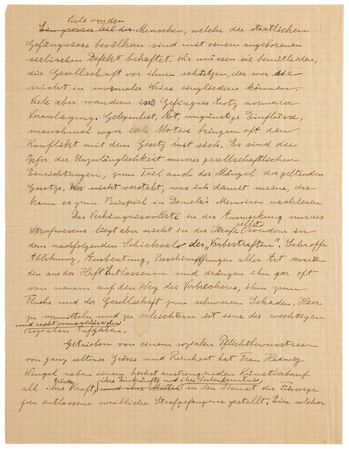 Viele von den
Ein grosser Teil der Menschen, welche die staatlichen
Gefängnisse bevölkern sind mit einem angeborenen
seelischen Defekt behaftet. Wir müssen sie bemitleiden,
die Gesellschaft vor ihnen schützen, der wir sie
nicht in normaler Weise eingliedern können.
Viele aber wandern ins Gefängnis trotz normaler
Veranlagung. Gelegenheit, Not, ungünstige Einflüsse,
manchmal sogar edle Motive bringen oft den
Konflikt mit dem Gesetz mit sich. Es sind die
Opfer der Unzulänglichkeit unserer gesellschaftlichen
Einrichtungen, zum Teil auch der Mängel der geltenden
Gesetze. Wer nicht versteht, was ich damit meine, der
kann es zum Beispiel in Domela's Memoiren nachlesen.
Das Verhängnisvollste in der Auswirkung unseres
selbst
Strafwesens liegt aber nicht in der Strafe sondern in
dem nachfolgenden Schicksal des „Vorbestraften". Schroffe
Ablehnung, Ausbeutung, Beschimpfungen aller Art erwarten
den aus der Haft Entlassenen und drängen ihn gar oft
von neuem auf den Weg des Verbrechens, ihm zum
Fluche und der Gesellschaft zum schweren Schaden. Hier
zu vermitteln und zu erleichtern ist eine der wichtigsten
und
sozialen Aufgaben.
Getrieben von einem sozialen Pflichtbewusstsein
von ganz seltener Grösse und Reinheit hat Frau Hedwig
Wangel neben einem höchst anstrengenden Künstlerberuf
ihre Einkünfte und ihre
all ihre Kraft, und ohne Mittel in den Dienst der Fürsorge
für entlassene weibliche Strafgefangene gestellt. Eine solcher